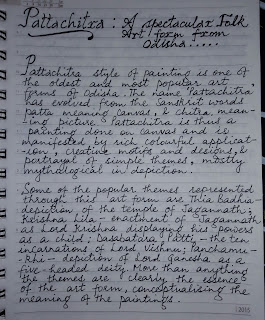 Pattachitra : A spectacular Folk
Art form from
Odisha.....
Pattachitra style of painting is one of
the oldest and most popular art
forms of Odisha. The name Pattachitra
has evolved from the Sanskrit words
patta meaning canvas, & chitra, mean-
ing picture. Pattachitra is thus a
painting done on canvas and is
manifested by rich colourful applicat-
-ion, creative motifs and designs, &
portrayal of simple themes, mostly
mythological in depiction.
Some of the popular themes represented
through this art form are Thia Badhia-
depiction of the temple of Jagannath;
Krishna Lila - enactment of Jagannath
as Lord Krishna displaying his powers
as a child; Dasabatara Patti - the ten
incarnations of Lord Vishnu; Panchamu-
-khi - depiction of Lord Ganesha as a
five-headed deity. More than anything
the themes are clearly the essence
of the art form, conceptualising the
meaning of the paintings.